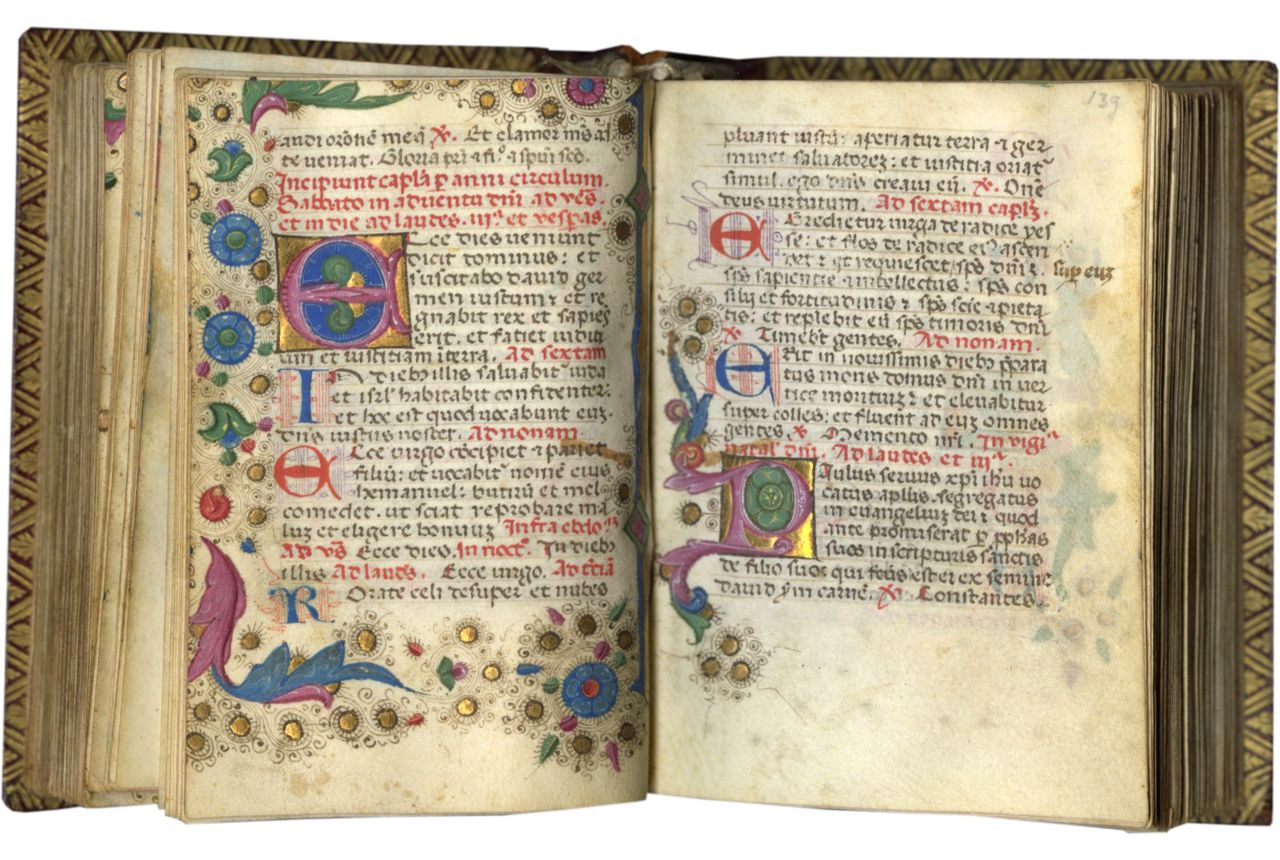 tandi orõnẽ meã ℣. Et clamor me͂s ad
te veniat. Gloria pri̅ ⁊ fi̅o ⁊ spui̅ sc̅o.
Incipiunt cap̅la p̱ anni circulum.
Sabbato in adventu dn̅i ad ve̅s.
et in die ad laudes. iiiᵃ et vesp̅as.
ECce dies veniunt
dicit dominus: et
suscitabo david ger
men iustum ⁊ et re
gnabit rex et sapiẽs
erit. et faciet iuditi
um et iusticiam ĩ terra. Ad sextam
IN dieb illis salvabit̃ iuda
et isrl̃ habitabit confidenter:
et hoc est quod vocabunt euꝫ.
dn̅s iustus noster. Ad nonam
ECce virgo cõcipiet ⁊ pariet
filiũ: et vocabit̃ nomẽ eius
hemanuel: butirũ et mel
comedet. ut sciat reprobare ma
luꝫ et eligere bonuꝫ Infra ebdo
Ad ve̅s Ecce dies. In noct̃. In dieb
illis Ad laudes. Ecce virgo. Ad t̃ciã
ROrate celi desuper et nubes
139
pluant iustũ: aperiatur terra ⁊ ger
minet salvatoreꝫ: et iusticia oriat̃
simul. ego dn̅s creavi eũ. ℣. Dñe
deus virtutum. Ad sextam cap̅lꝫ.
EGredietur virga de radice yes
se: et flos de radice eiꝰ ascen
det ⁊ et requiescet sp̅s dn̅i ⁊. sup euꝫ
sp̅s sapientie ⁊ intellectus: sp̅s con
silii et fortitudinis ⁊ sp̅s scĩe ⁊ pieta
tis: et replebit eũ sp̅s timoris dn̅i
℣. Timebt̃ gentes. Ad nonam.
ERit in novissimis dieb p̃para
tus mons domus dn̅i in ver
tice montiuꝫ ⁊ et elevabitur
super colles: et fluent ad euꝫ omnes
gentes ℣. Memento nri̅. In vigi̅ᵃ
natal̃ dn̅i. Ad laudes et iiiᵃ.
PAulus servus xp̅i ihũ vo
catus ap̅lus. segregatus
in evangeliuꝫ dei ⁊ quod
ante promiserat p̱ p̱phãs
suos in scripturis sanctis
de filio suo: qui fc̅us est ei ex semine
david sm̅ carnẽ. ℣. Constantes.